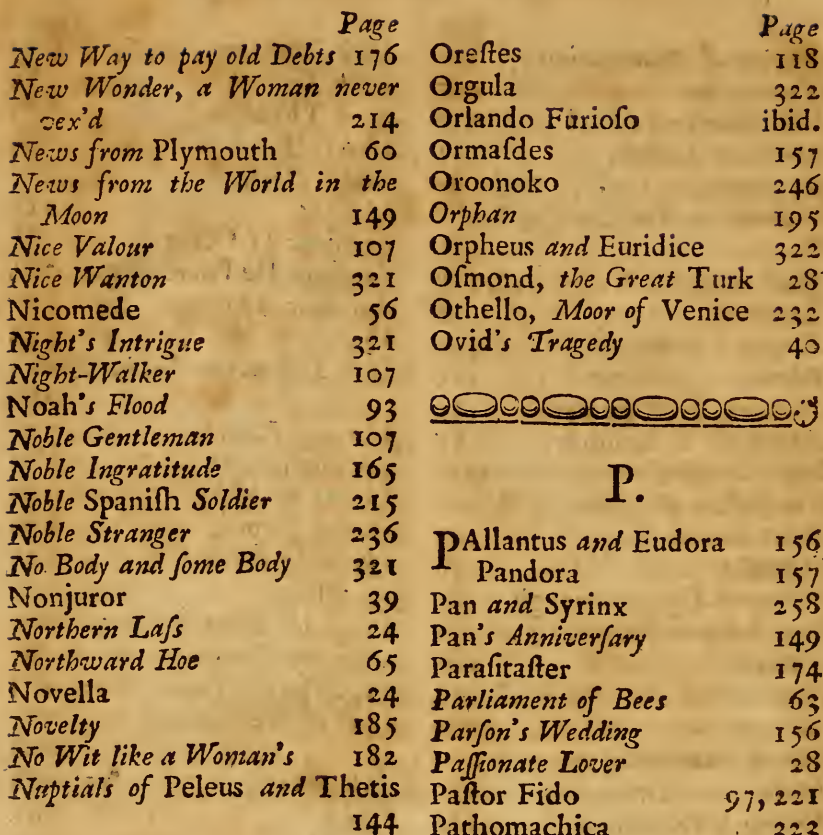 Page
New Way to pay old Debts 176
New Wonder, a Woman never
vex'd 214
News from Plymouth 60
News from the World in the
Moon 149
Nice Valour 107
Nice Wanton 321
Nicomede 56
Night's Intrigue 321
Night-Walker 107
Noah's Flood 93
Noble Gentleman 107
Noble Ingratitude 165
Noble Spaniſh Soldier 215
Noble Stranger 236
No Body and ſome Body 321
Nonjuror 39
Northern Laſs 24
Northward Hoe 65
Novella 24
Novelty 185
No Wit like a Woman's 182
Nuptials of Peleus and Thetis
144
Page
Oreſtes 118
Orgula 322
Orlando Furioſo ibid.
Ormaſdes 157
Oroonoko 246
Orphan 195
Orpheus and Euridice 322
Oſmond, the Great Turk 28
Othello, Moor of Venice 232
Ovid's Tragedy 40
P.
PAllantus and Eudora 156
Pandora 157
Pan and Syrinx 258
Pan's Anniverſary 149
Paraſitaſter 174
Parliament of Bees 63
Parſon's Wedding 156
Paſſionate Lover 28
Paſtor Fido 97, 221
Pathomachica 222